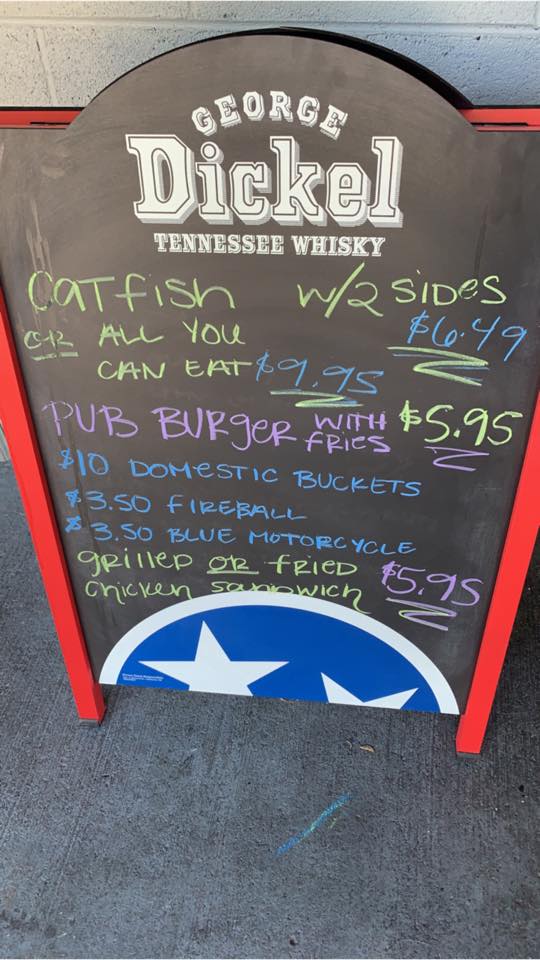 GEORGE
Dickel
TENNESSEE WHISKY
CATfISH W/2 SIDES
OR ALL YOU $6.49
CAN EAT $9.95
PUB BURgER WITH FRIES $5.95
$10 DOMESTIC BUCKETS
$3.50 FIREBALL
$3.50 BLUE MOTORCYCLE
grilled OR fRIED
chicken sandwich $5.95